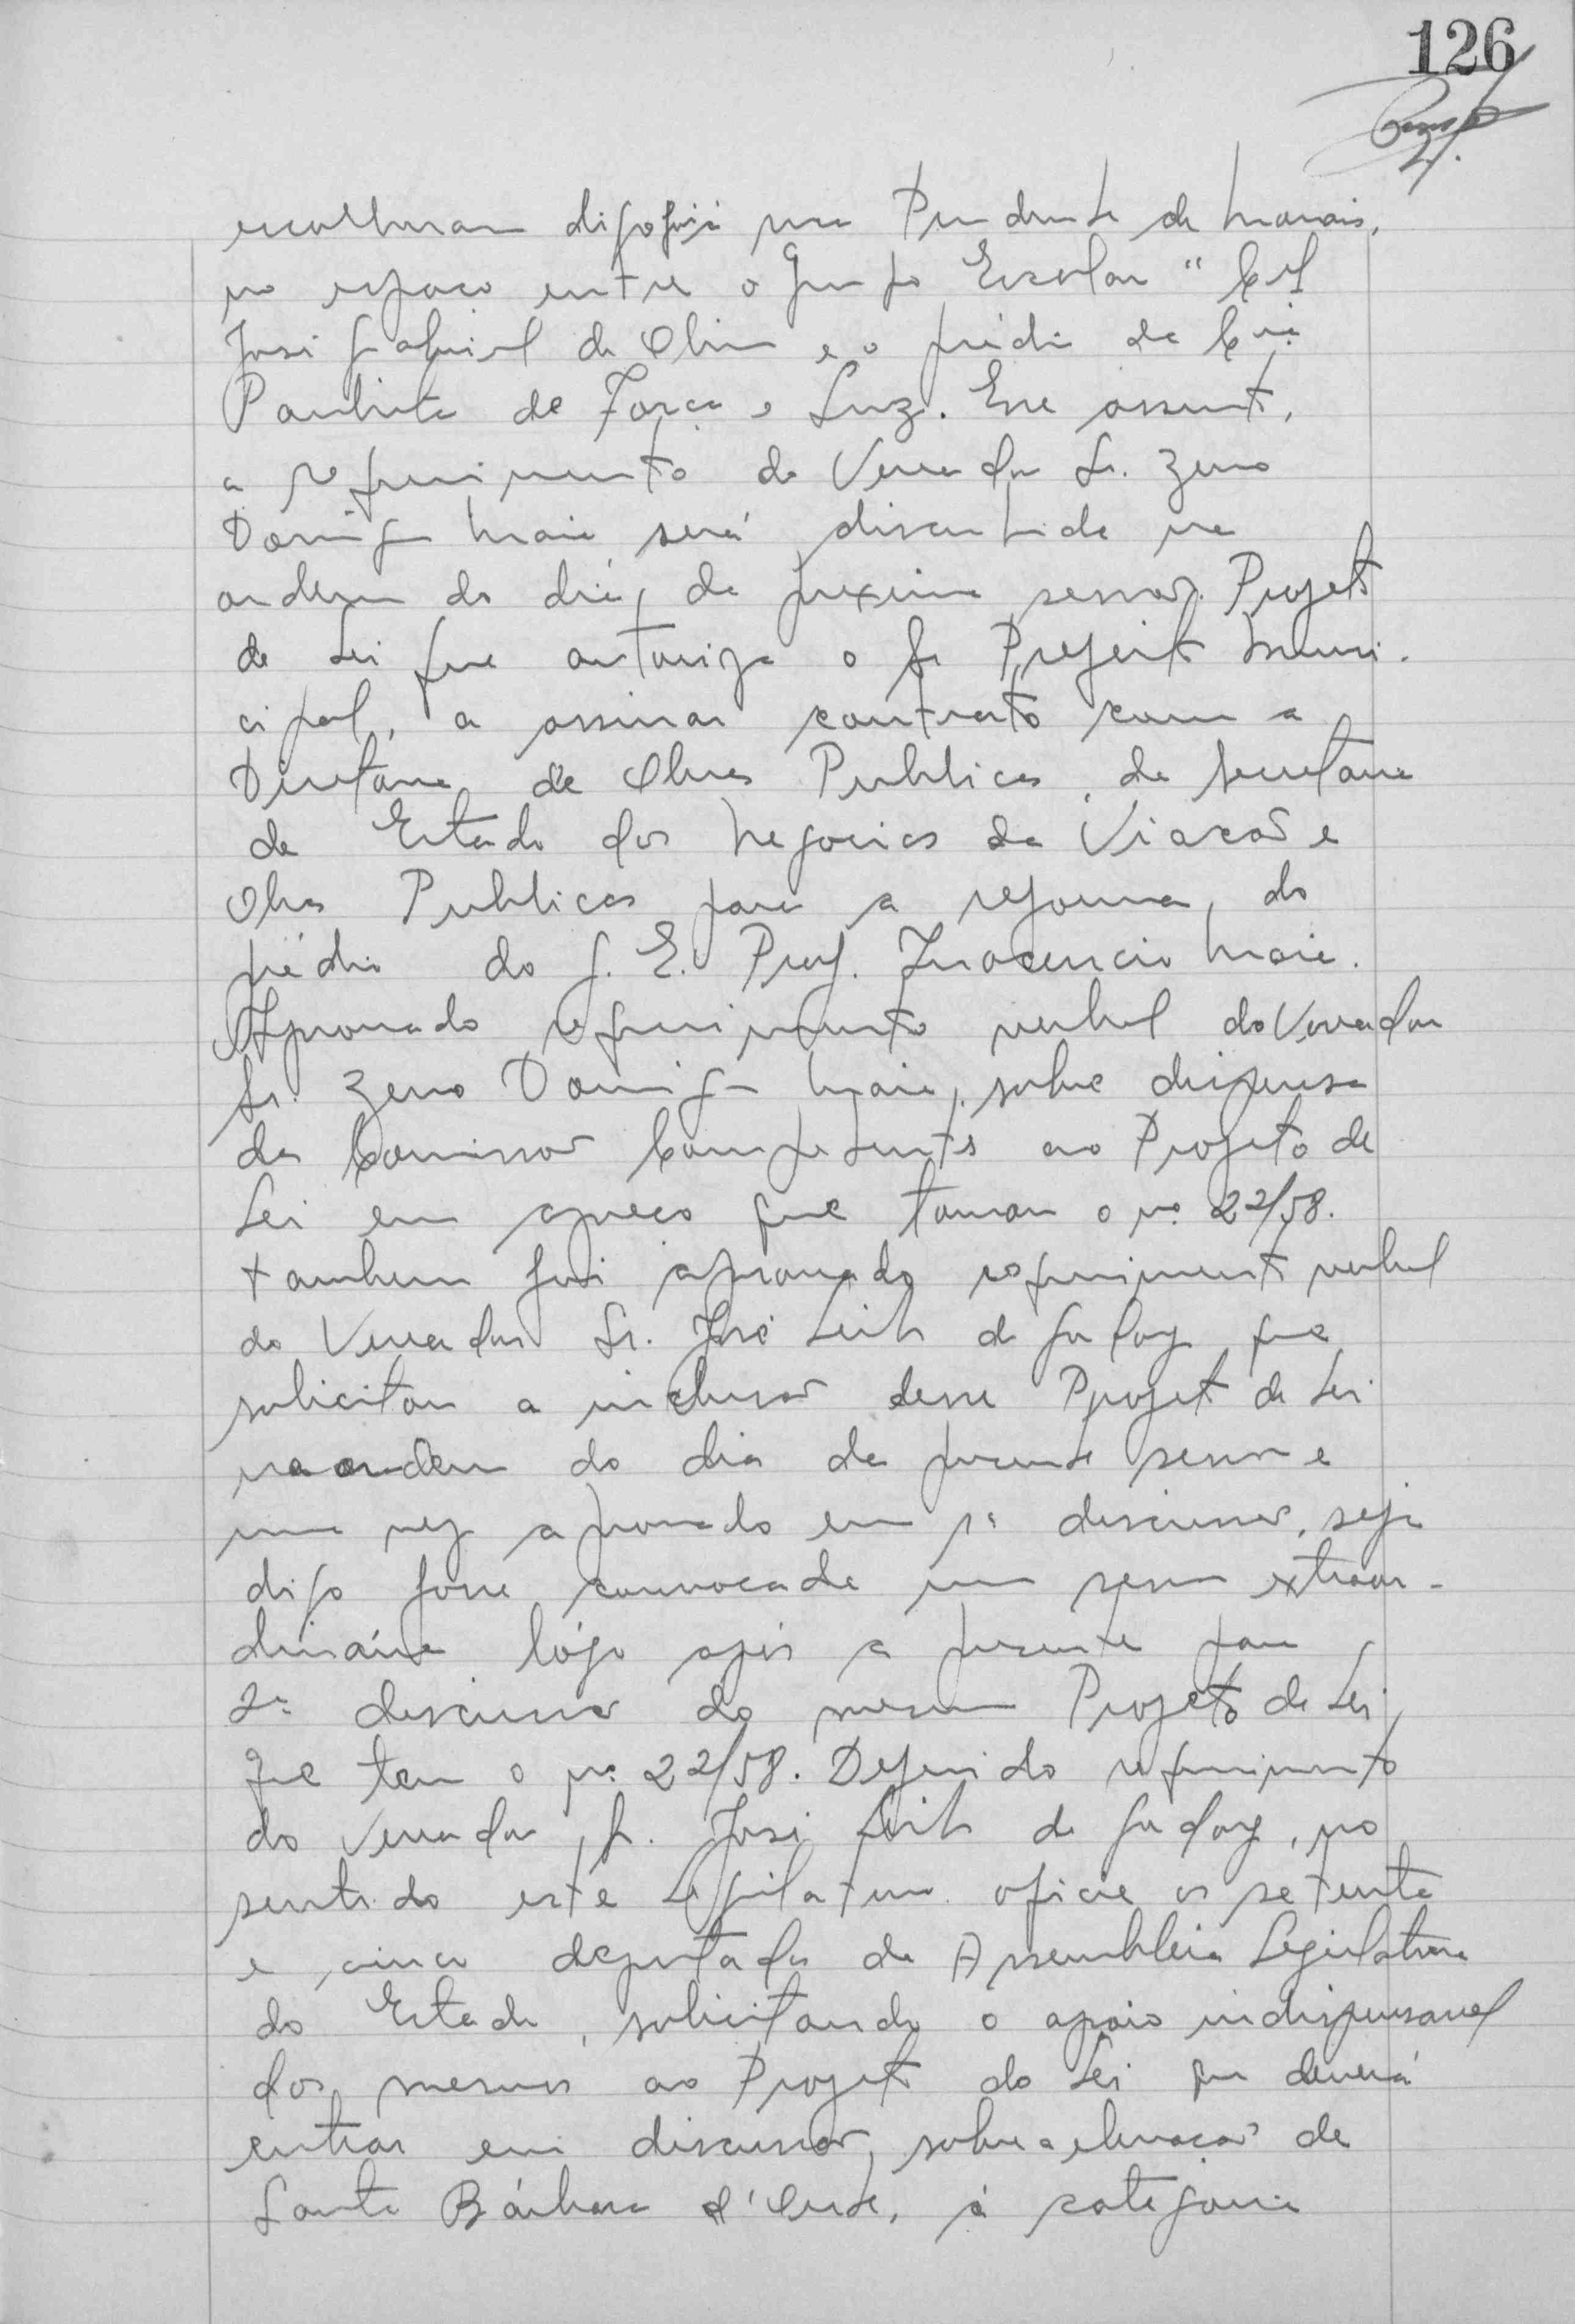 126
escolheram digo foi a rua Prudente de Morais,
no espaço entre o Grupo Escolar "Cel
José Gabriel de Oliv e o prédio da Cia
Paulista de Força e Luz. Esse assunto,
a requerimento do Vereador Sr. Zeno
Domingos Maia será discutida na
ordem do dia, da proxima sessão. Projeto
de Lei que autoriza o Sr Prefeito Muni-
cipal, a assinar contrato com a
Diretoria de Obras Publicas, da Secretaria
de Estado dos Negocios da Viação e
Obras Publicas para a reforma, do
prédio do G. E. Prof. Inocencio Maia.
Aprovado requerimento verbal do Vereador
Sr. Zeno Domingos Maia, sobre dispensa
da Comissão Competente ao Projeto de
Lei em apreço que tomou o nº 22/58.
também foi aprovado requerimento verbal
do Vereador Sr. José Leite de Godoy que
solicitou a inclusão desse Projeto de Lei
na ordem do dia da presente sessão e
uma vez aprovado em 1ª discussão, seja
digo fosse convocada uma sessão extraor-
dinária lógo após a presente para
2ª discussão do mesmo Projeto de Lei
que tem o nº 22/58. Deferido requerimento
do Vereador Sr. José Leite de Godoy, no
sentido este Legislativo oficie os setenta
e cinco deputados da Assembleia Legislativa
do Estado, solicitando o apoio indispensavel
dos mesmos ao Projeto do Lei que deverá
entrar em discussão, sobre a elevação de
Santa Bárbara d'Oeste, à categoria